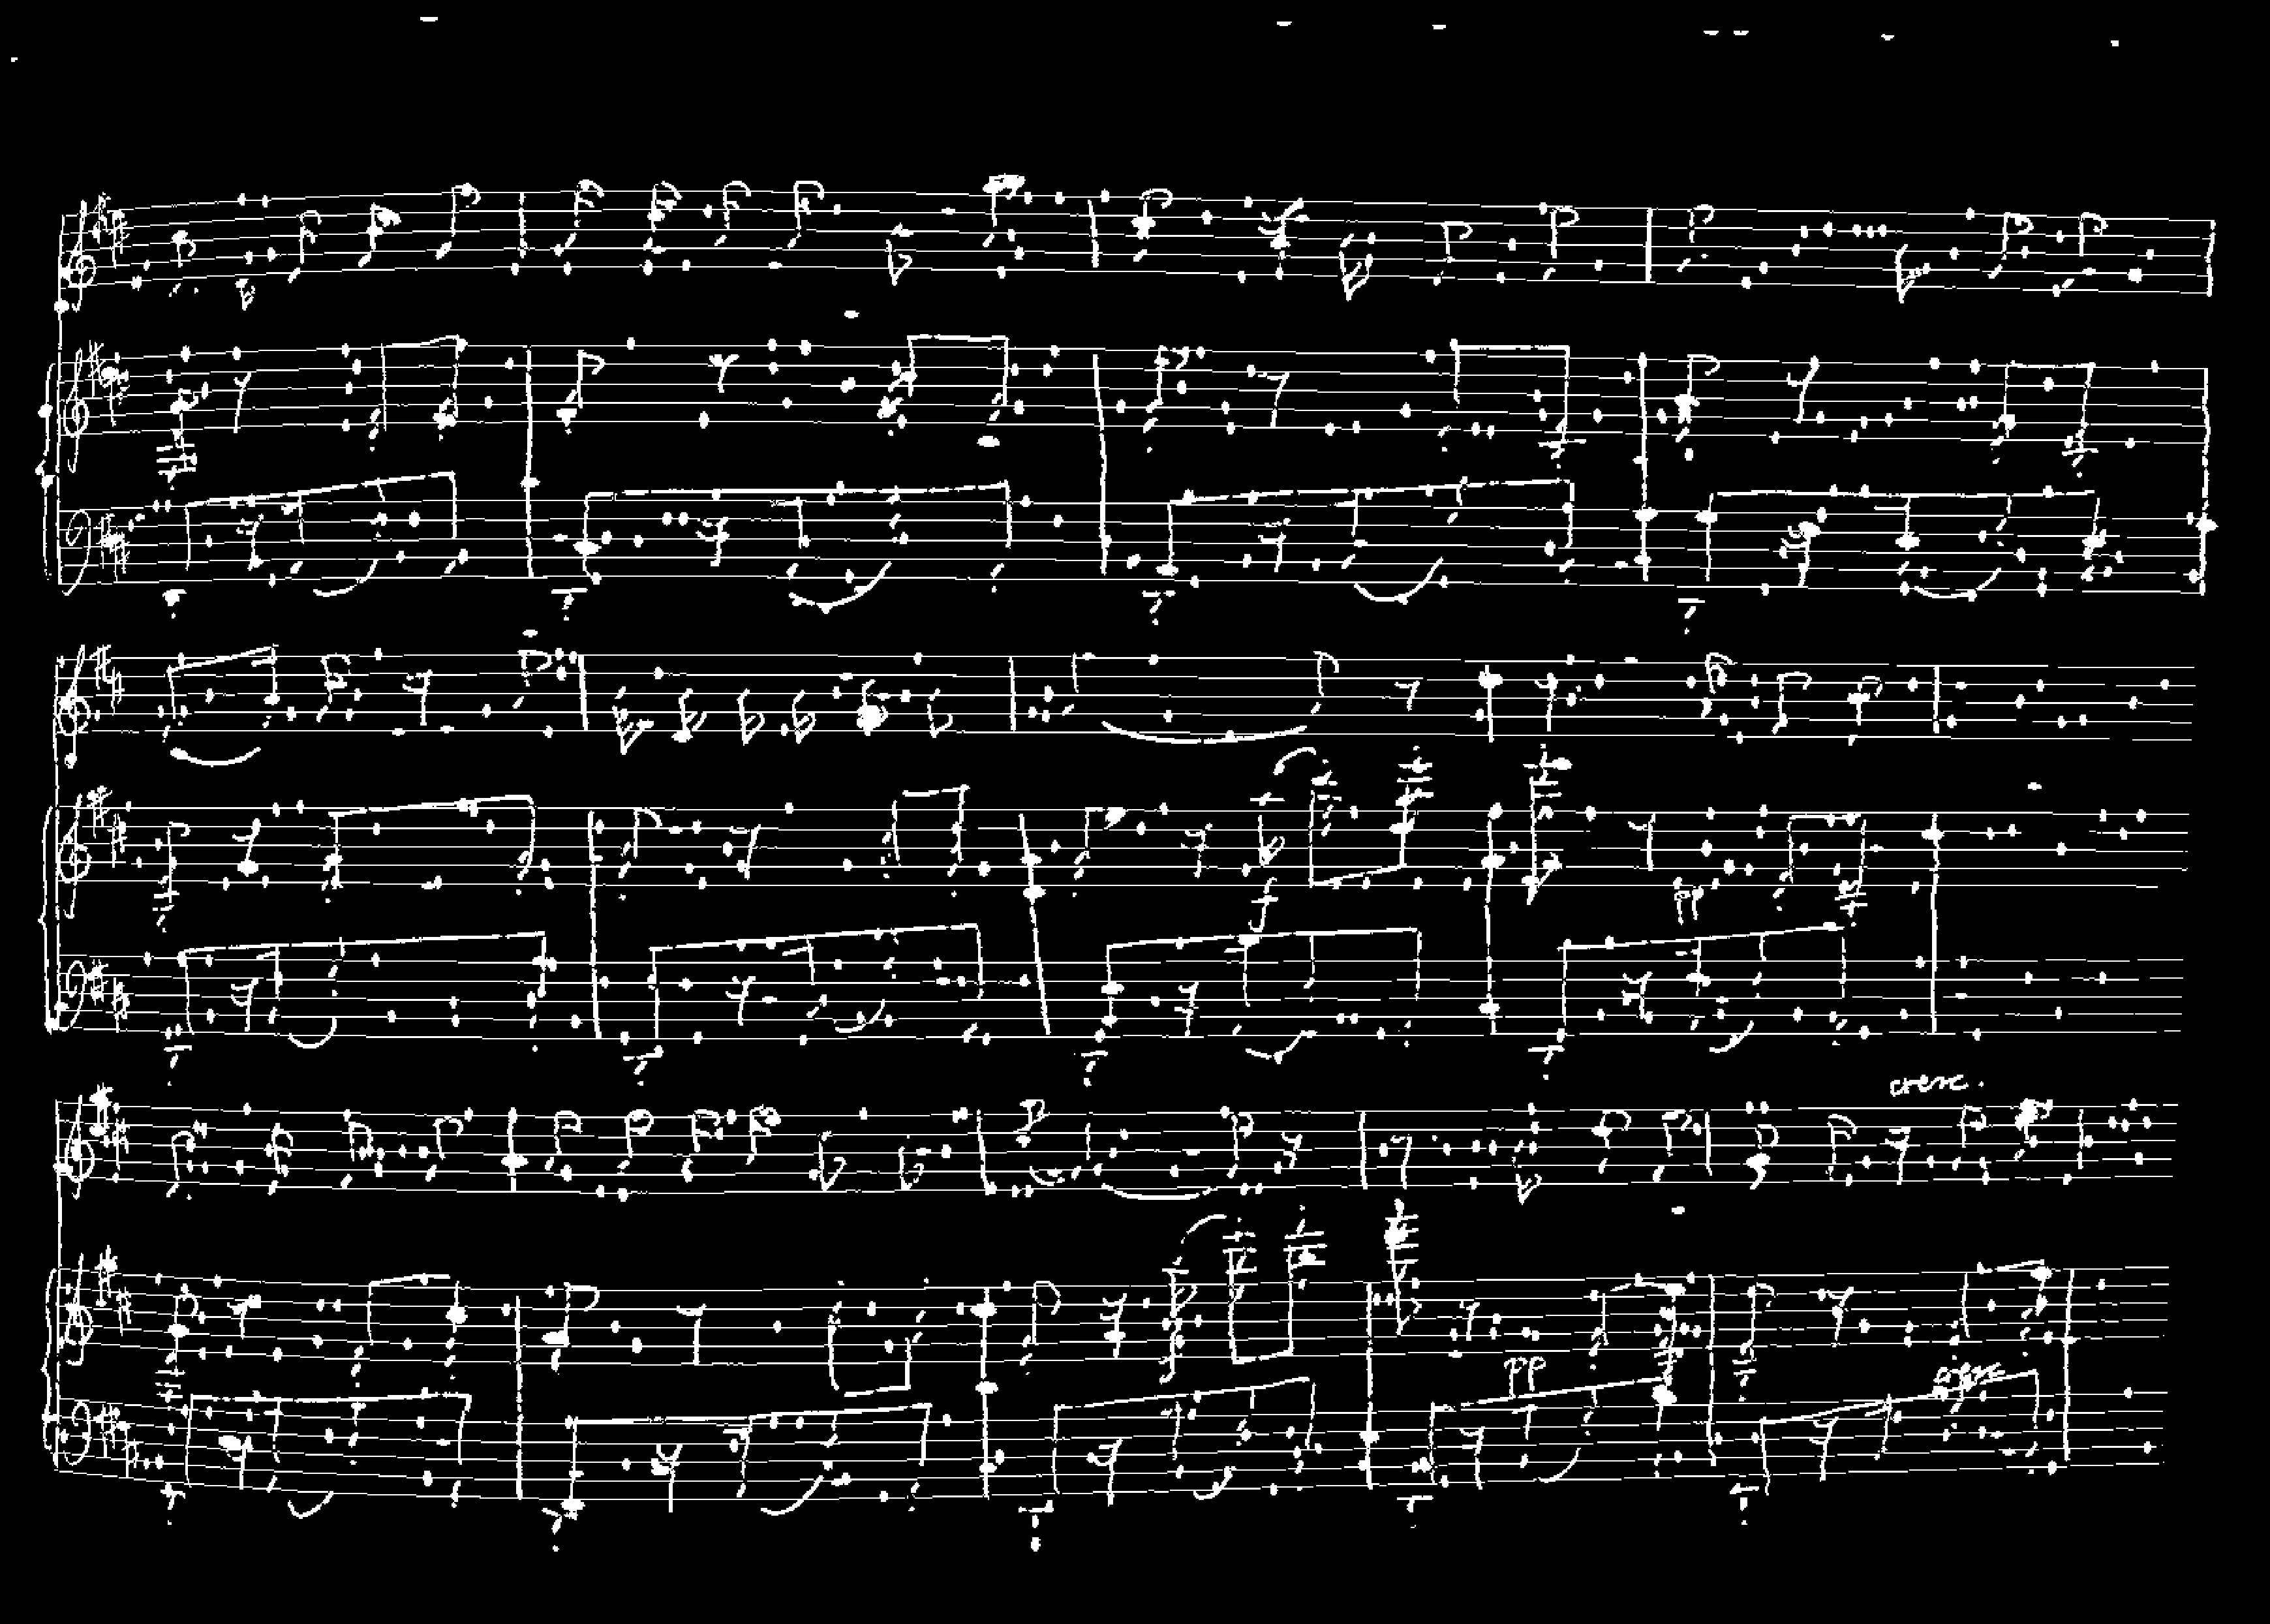 f
pp
cresc.
pp
cresc